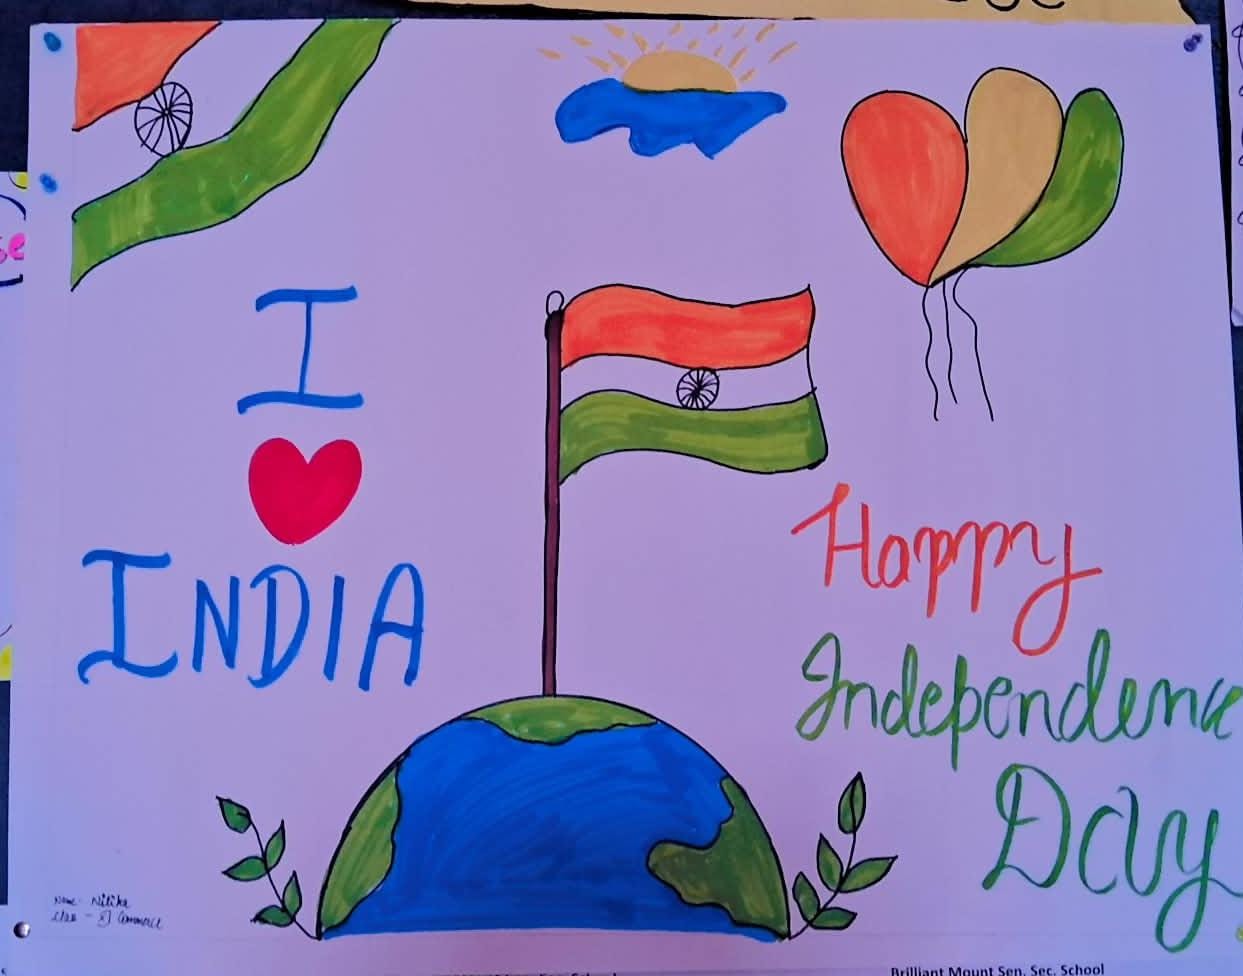 I
INDIA
Happy
Independence
Day
Name - Nitika
Class - XI Commerce
Brilliant Mount Sen. Sec. School